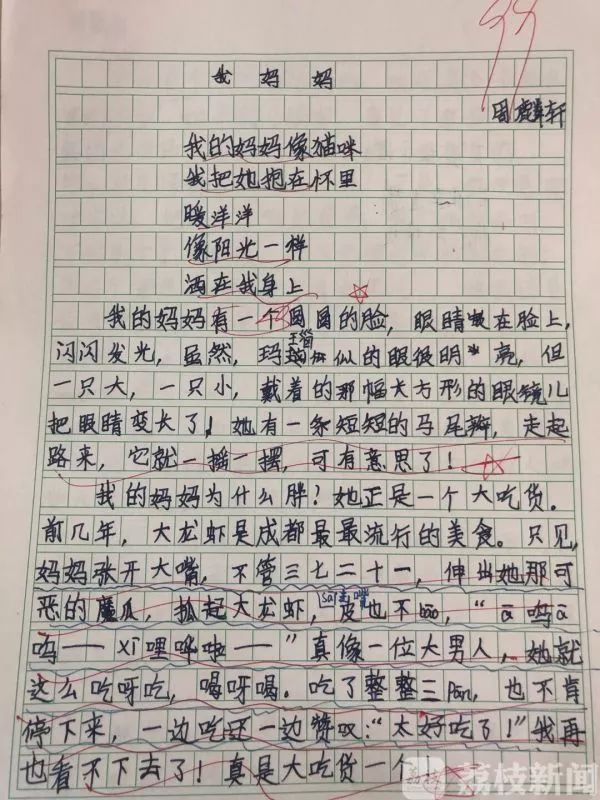 99
我妈妈
周麟轩
我的妈妈像猫咪
我把她抱在怀里
暖洋洋
像阳光一样
洒在我身上
我的妈妈有一个圆圆的脸，眼睛在脸上，
闪闪发光，虽然，玛似的眼很明亮，但
一只大，一只小，戴着的那幅大方形的眼镜儿
把眼睛变长了！她有一条短短的马尾辫，走起
路来，它就一摇一摆，可有意思了！
我的妈妈为什么胖？她正是一个大吃货。
前几年，大龙虾是成都最最流行的美食。只见，
妈妈张开大嘴，不管三七二十一，伸出她那可
恶的魔爪，抓起大龙虾，皮也不bāo，“ā呜ā
呜——xī哩哗啦——”真像一位大男人，她就
这么吃呀吃，喝呀喝。吃了整整三pán，也不肯
停下来，一边吃还一边赞叹：“太好吃了！”我再
也看不下去了！真是大吃货一个
荔枝新闻